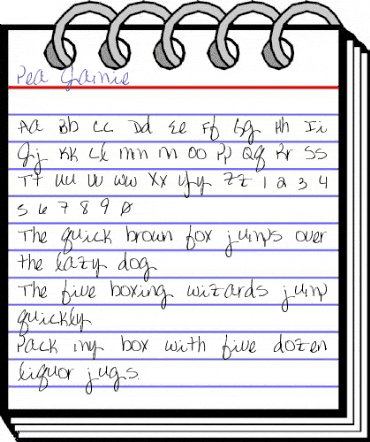 Pea Jamie
Aa Bb Cc Dd Ee Ff Gg Hh Ii
Jj Kk Ll Mm Nn Oo Pp Qq Rr Ss
Tt Uu Vv Ww Xx Yy Zz 1 2 3 4
5 6 7 8 9 0
The quick brown fox jumps over
the lazy dog
The five boxing wizards jump
quickly
Pack my box with five dozen
liquor jugs.